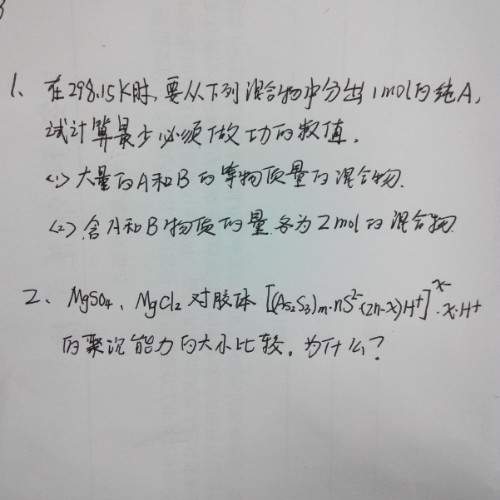 1、在298.15K时,要从下列混合物中分出1mol的纯A,
试计算最少必须做功的数值.
<1>大量的A和B的等物质量的混合物.
<2>含A和B物质的量各为2mol的混合物.
2、MgSO₄、MgCl₂对胶体[(As₂S₃)m·nS²⁻·(2n-x)H⁺]ˣ⁻·x·H⁺
的聚沉能力的大小比较,为什么?